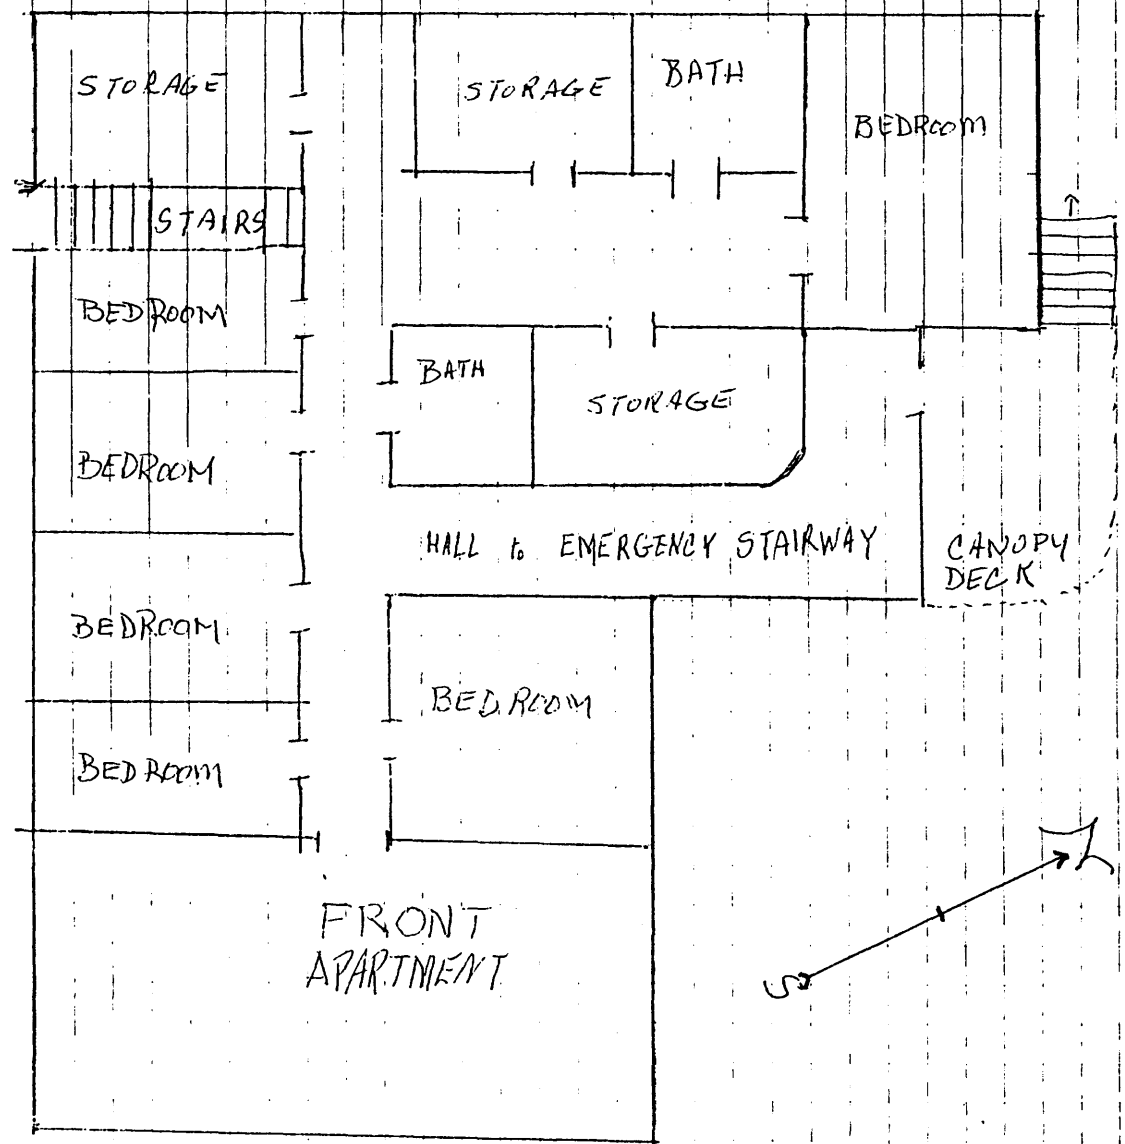 STORAGE
STORAGE
BATH
BEDROOM
STAIRS
BEDROOM
BATH
STORAGE
BEDROOM
HALL to EMERGENCY STAIRWAY
CANOPY
DECK
BEDROOM
BEDROOM
BEDROOM
FRONT
APARTMENT
N
S